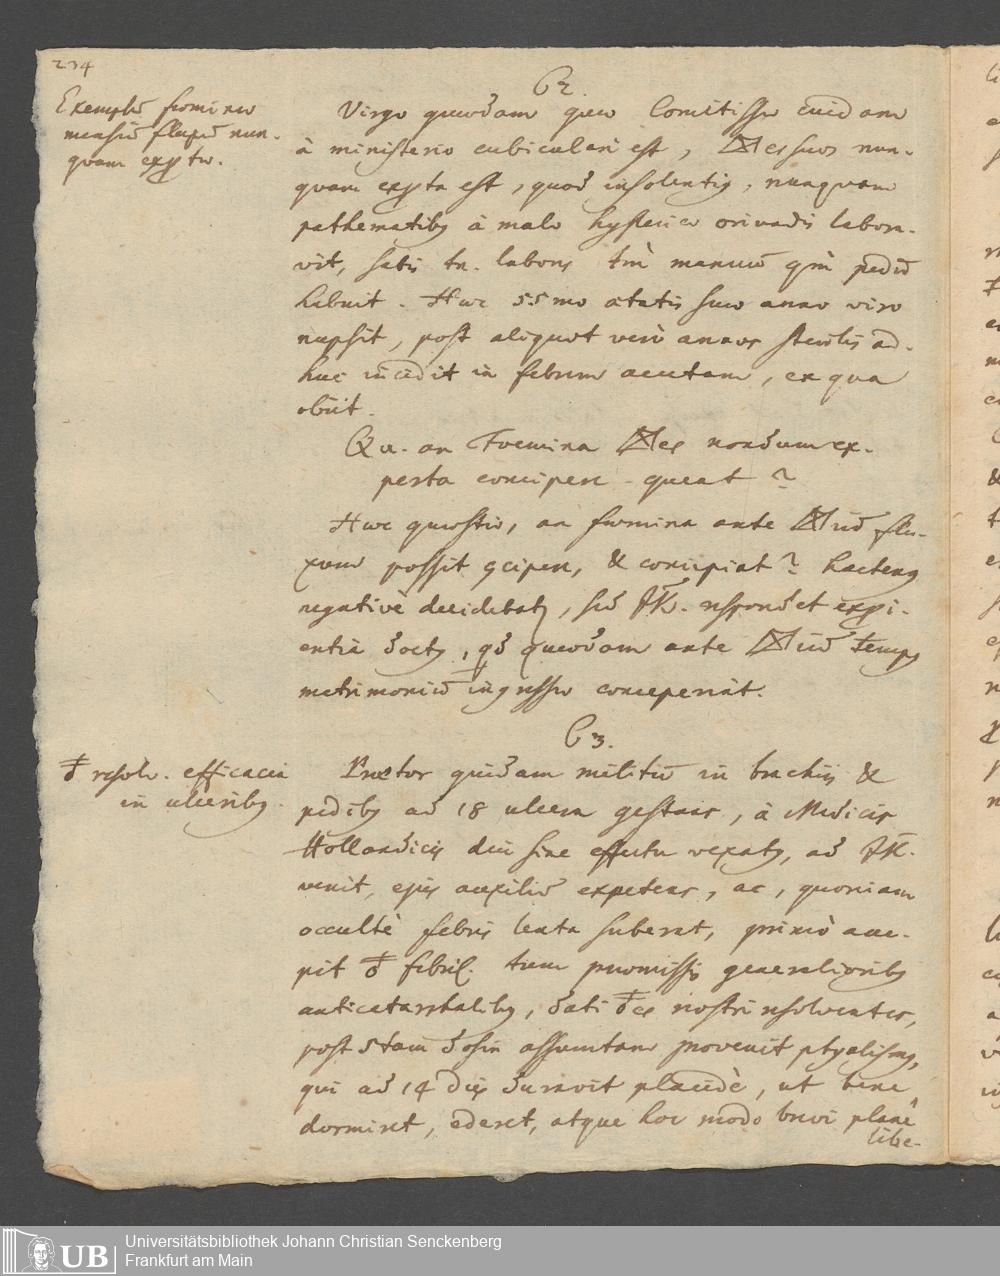 234
C 2.
Exemplũ foeminae
mensiũ fluxũ nun-
quam exptae.
Virgo quaedam quae Comitissae cuidam
à ministerio cubiculari est, menses suos nun-
quam experta est, quod insolentig, nunquam
pathematibg à malo hysterico oriundis labora-
vit, satis tn. laboris tm̀ manuũ qm̀ pedũ
habuit. Haec 55mo aetatis suae anno viro
nupsit, post aliquot verò annos sterilis ad-
huc incidit in febrem acutam, ex qua
obiit.
Qu. an Foemina menses nondum ex-
perta concipere queat?
Haec quaestio, an foemina ante mensiũ flu-
xum possit concipere, & concipiat? hacteng
negativè decidebatur, sed respondet expi-
entiâ doctg, qd quaedam ante mensiũ tempg
matrimoniũ ingressae conceperint.
C 3.
resolv. efficacia
in ulceribg.
Praetor quidam militũ in brachiis &
pedibg ad 18 ulcera gestans, à Medicis
Hollandicis diu sine effectu vexatg, ad
venit, ejus auxiliũ expetens, ac, quoniam
occultè febris lenta suberat, primò acce-
pit febril. tum praemissis generalioribg
anticatarrhalibg, dati nostri resolventes,
post 5tam dosin assumtam provenit ptyalismg,
qui ad 14 dies duravit placidè, ut bene
dormiret, ederet, atque hoc modo brevi planè
libe-
UB
Universitätsbibliothek Johann Christian Senckenberg
Frankfurt am Main